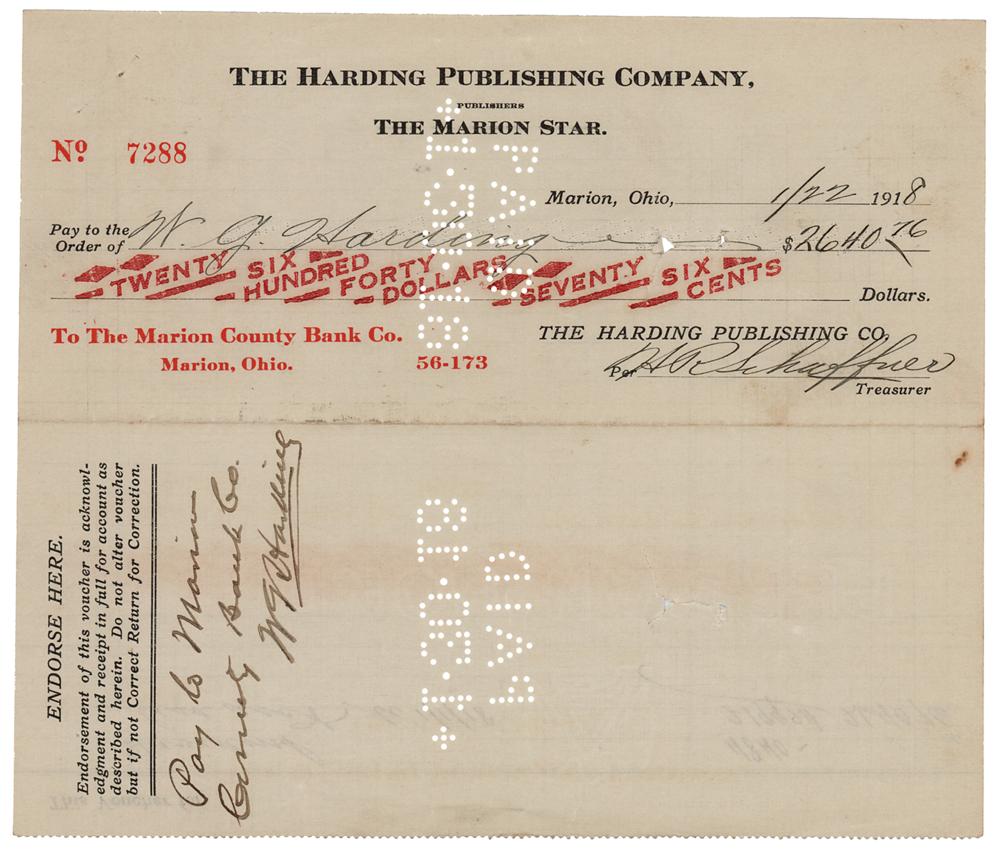 THE HARDING PUBLISHING COMPANY,
PUBLISHERS
THE MARION STAR.
Nº 7288
Marion, Ohio, 1/22 1918
Pay to the
Order of W. G. Harding $2640 76
TWENTY SIX HUNDRED FORTY DOLLARS SEVENTY SIX CENTS
Dollars.
To The Marion County Bank Co.
Marion, Ohio. 56-173
THE HARDING PUBLISHING CO.
Per H R Schaffner
Treasurer
PAID
ENDORSE HERE.
Endorsement of this voucher is acknowl-
edgment and receipt in full for account as
described herein. Do not alter voucher
but if not Correct Return for Correction.
Pay to Marion
County Bank Co.
W G Harding
PAID